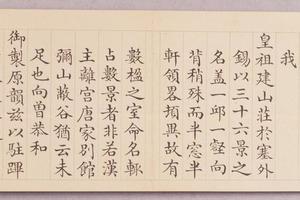 我
皇祖建山莊於塞外
錫以三十六景之
名盖一邱一壑向
背稍殊而半窓半
軒領畧頓異故有
數楹之室命名輒
占數景者非若漢
主離宫唐家别館
彌山蔽谷猶云未
足也向曽恭和
御製原韻兹以駐蹕